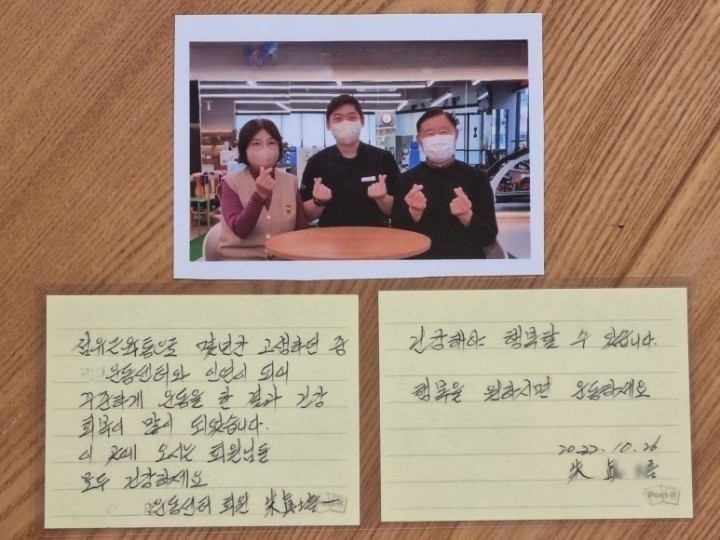 섬유근육통으로 몇년간 고생하던 중
운동센터와 인연이 되어
꾸준하게 운동을 한 결과 건강
회복이 많이 되었습니다.
이 곳에 오시는 회원님들
모두 건강하세요
운동센터 회원 朱眞
건강해야 행복할 수 있습니다.
행복을 원하시면 운동하세요
2022.10.26
朱眞
Post-it
Post-it